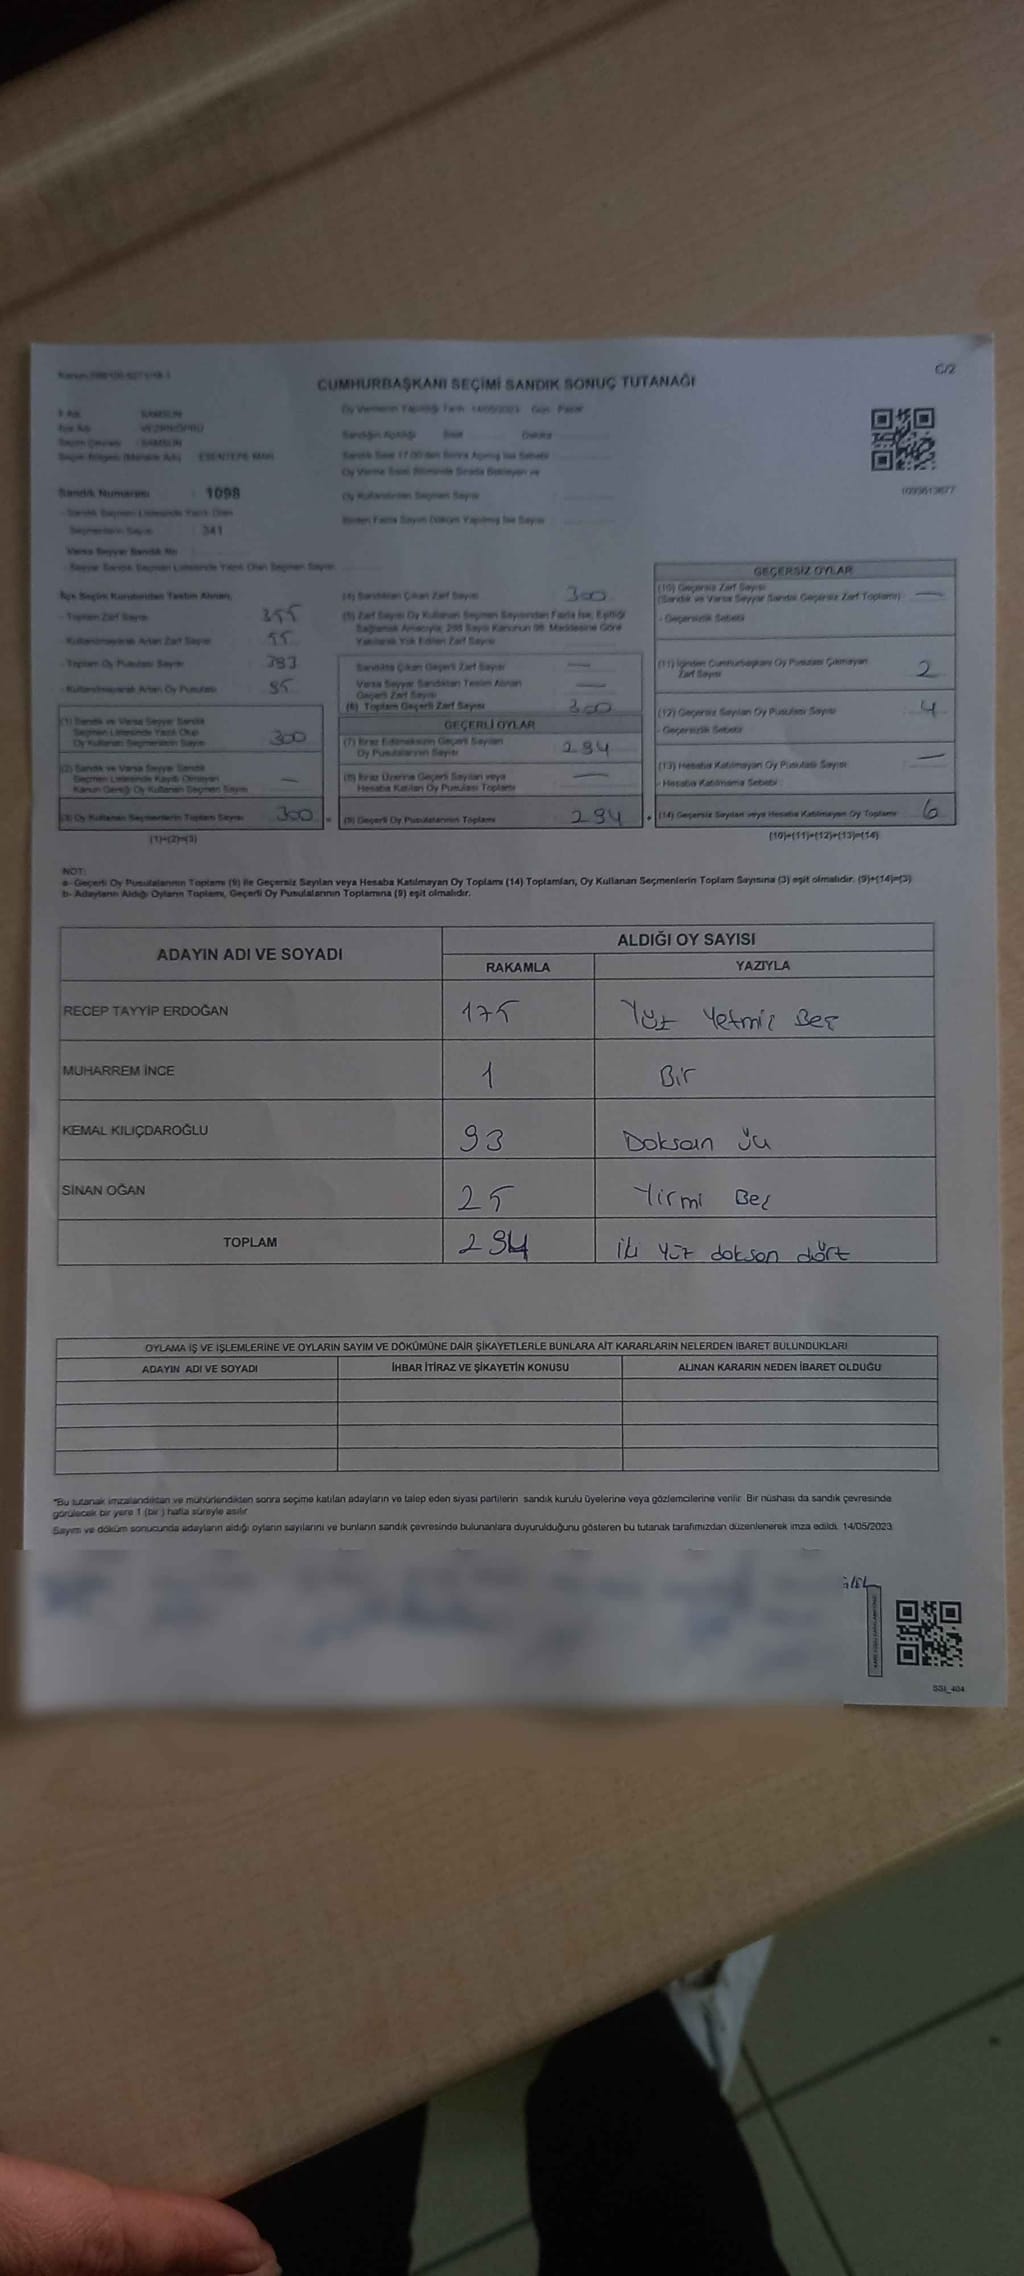 C/2
CUMHURBAŞKANI SEÇİMİ SANDIK SONUÇ TUTANAĞI
Oy Vermenin Yapıldığı Tarih 14/05/2023 Gün Pazar
SAMSUN
VEZİRKÖPRÜ
Seçim Çevresi : SAMSUN
Seçim Bölgesi (Mahalle Adı) : ESENTEPE MAH.
Sandığın Açıldığı Saat Dakika
Oy Kullandırılan Seçmen Sayısı
Sandık Numarası : 1098
- Sandık Seçmen Listesinde Yazılı Olan
Seçmenlerin Sayısı : 341
Birden Fazla Sayım Döküm Yapılmış İse Sayısı
Varsa Seyyar Sandık No
- Seyyar Sandık Seçmen Listesinde Yazılı Olan Seçmen Sayısı
İlçe Seçim Kurulundan Teslim Alınan;
- Toplam Zarf Sayısı 355
- Kullanılmayarak Artan Zarf Sayısı 55
- Toplam Oy Pusulası Sayısı 383
- Kullanılmayarak Artan Oy Pusulası
(1) Sandık ve Varsa Seyyar Sandık
Seçmen Listesinde Yazılı Olup
Oy Kullanan Seçmenlerin Sayısı 300
(2) Sandık ve Varsa Seyyar Sandık
Seçmen Listesinde Kayıtlı Olmayan
Kanun Gereği Oy Kullanan Seçmen Sayısı —
(3) Oy Kullanan Seçmenlerin Toplam Sayısı 300
(1)+(2)=(3)
(4) Sandıktan Çıkan Zarf Sayısı 300
(5) Zarf Sayısı Oy Kullanan Seçmen Sayısından Fazla İse, Eşitliği
Sağlamak Amacıyla, 298 Sayılı Kanunun 98. Maddesine Göre
Yakılarak Yok Edilen Zarf Sayısı
Sandıkta Çıkan Geçerli Zarf Sayısı —
Varsa Seyyar Sandıktan Teslim Alınan
Geçerli Zarf Sayısı —
(6) Toplam Geçerli Zarf Sayısı 300
GEÇERLİ OYLAR
(7) İtiraz Edilmeksizin Geçerli Sayılan
Oy Pusulalarının Sayısı 294
(8) İtiraz Üzerine Geçerli Sayılan veya
Hesaba Katılan Oy Pusulası Toplamı —
(9) Geçerli Oy Pusulalarının Toplamı 294
GEÇERSİZ OYLAR
(10) Geçersiz Zarf Sayısı
(Sandık ve Varsa Seyyar Sandık Geçersiz Zarf Toplamı) —
- Geçersizlik Sebebi
(11) İçinden Cumhurbaşkanı Oy Pusulası Çıkmayan
Zarf Sayısı 2
(12) Geçersiz Sayılan Oy Pusulası Sayısı 4
- Geçersizlik Sebebi
(13) Hesaba Katılmayan Oy Pusulası Sayısı —
- Hesaba Katılmama Sebebi :
(14) Geçersiz Sayılan veya Hesaba Katılmayan Oy Toplamı 6
(10)+(11)+(12)+(13)=(14)
NOT:
a- Geçerli Oy Pusulalarının Toplamı (9) ile Geçersiz Sayılan veya Hesaba Katılmayan Oy Toplamı (14) Toplamları, Oy Kullanan Seçmenlerin Toplam Sayısına (3) eşit olmalıdır. (9)+(14)=(3)
b- Adayların Aldığı Oyların Toplamı, Geçerli Oy Pusulalarının Toplamına (9) eşit olmalıdır.
ADAYIN ADI VE SOYADI ALDIĞI OY SAYISI
RAKAMLA YAZIYLA
RECEP TAYYİP ERDOĞAN 175 Yüz Yetmiş Beş
MUHARREM İNCE 1 Bir
KEMAL KILIÇDAROĞLU 93 Doksan üç
SİNAN OĞAN 25 Yirmi Beş
TOPLAM 294 iki yüz doksan dört
OYLAMA İŞ VE İŞLEMLERİNE VE OYLARIN SAYIM VE DÖKÜMÜNE DAİR ŞİKAYETLERLE BUNLARA AİT KARARLARIN NELERDEN İBARET BULUNDUKLARI
ADAYIN ADI VE SOYADI İHBAR İTİRAZ VE ŞİKAYETİN KONUSU ALINAN KARARIN NEDEN İBARET OLDUĞU
*Bu tutanak imzalandıktan ve mühürlendikten sonra seçime katılan adayların ve talep eden siyasi partilerin sandık kurulu üyelerine veya gözlemcilerine verilir. Bir nüshası da sandık çevresinde
görülecek bir yere 1 (bir) hafta süreyle asılır.
Sayım ve döküm sonucunda adayların aldığı oyların sayılarını ve bunların sandık çevresinde bulunanlara duyurulduğunu gösteren bu tutanak tarafımızdan düzenlenerek imza edildi. 14/05/2023
SSI_404